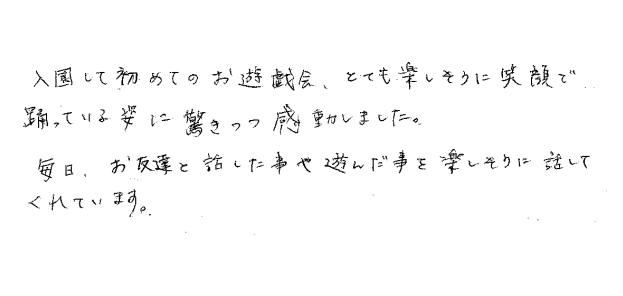 入園して初めてのお遊戯会、とても楽しそうに笑顔で
踊っている姿に驚きつつ感動しました。
毎日、お友達と話した事や遊んだ事を楽しそうに話して
くれています。